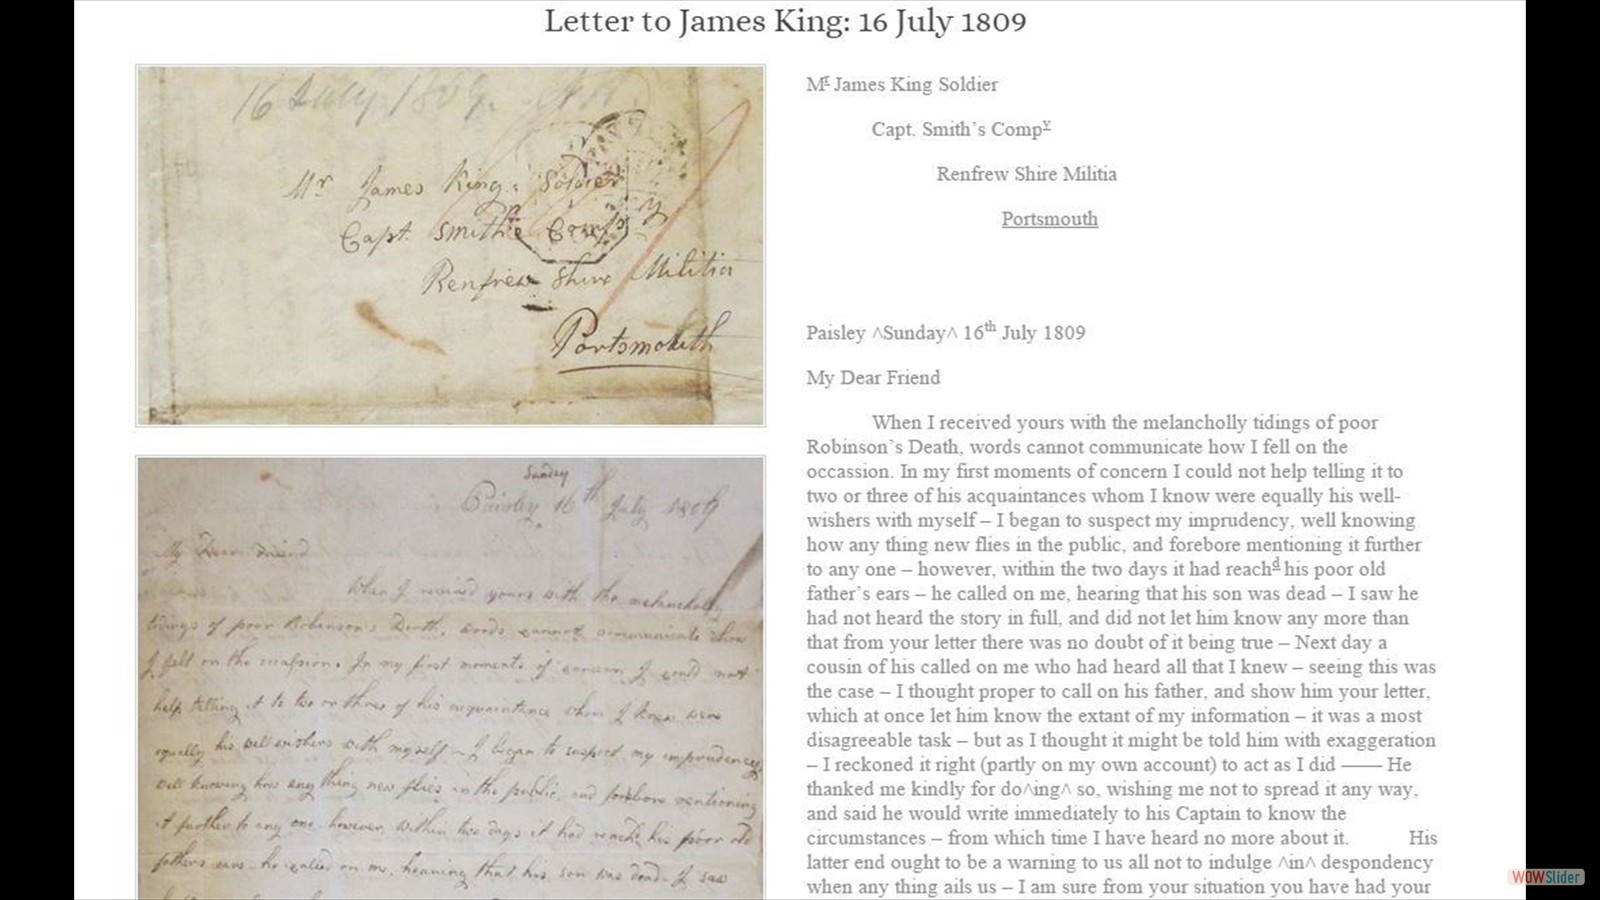 Letter to James King: 16 July 1809
16 July 1809.
Mr James King: Soldier
Capt. Smith's Compy
Renfrew Shire Militia
Portsmouth
Sunday
Paisley 16th July 1809
My Dear Friend
When I received yours with the melancholly
tidings of poor Robinson's Death, words cannot communicate how
I fell on the occassion. In my first moments of concern I could not
help telling it to two or three of his acquaintance whom I know were
equally his well wishers with myself – I began to suspect my imprudency
well knowing how any thing new flies in the public, and forebore mentioning
it further to any one – however, within two days it had reachd his poor old
fathers ears – he called on me, hearing that his son was dead – I saw
Mr James King Soldier
Capt. Smith's Compy
Renfrew Shire Militia
Portsmouth
Paisley ^Sunday^ 16th July 1809
My Dear Friend
When I received yours with the melancholly tidings of poor
Robinson's Death, words cannot communicate how I fell on the
occassion. In my first moments of concern I could not help telling it to
two or three of his acquaintances whom I know were equally his well-
wishers with myself – I began to suspect my imprudency, well knowing
how any thing new flies in the public, and forebore mentioning it further
to any one – however, within the two days it had reachd his poor old
father's ears – he called on me, hearing that his son was dead – I saw he
had not heard the story in full, and did not let him know any more than
that from your letter there was no doubt of it being true – Next day a
cousin of his called on me who had heard all that I knew – seeing this was
the case – I thought proper to call on his father, and show him your letter,
which at once let him know the extant of my information – it was a most
disagreeable task – but as I thought it might be told him with exaggeration
– I reckoned it right (partly on my own account) to act as I did —— He
thanked me kindly for do^ing^ so, wishing me not to spread it any way,
and said he would write immediately to his Captain to know the
circumstances – from which time I have heard no more about it. His
latter end ought to be a warning to us all not to indulge ^in^ despondency
when any thing ails us – I am sure from your situation you have had your
WOWSlider